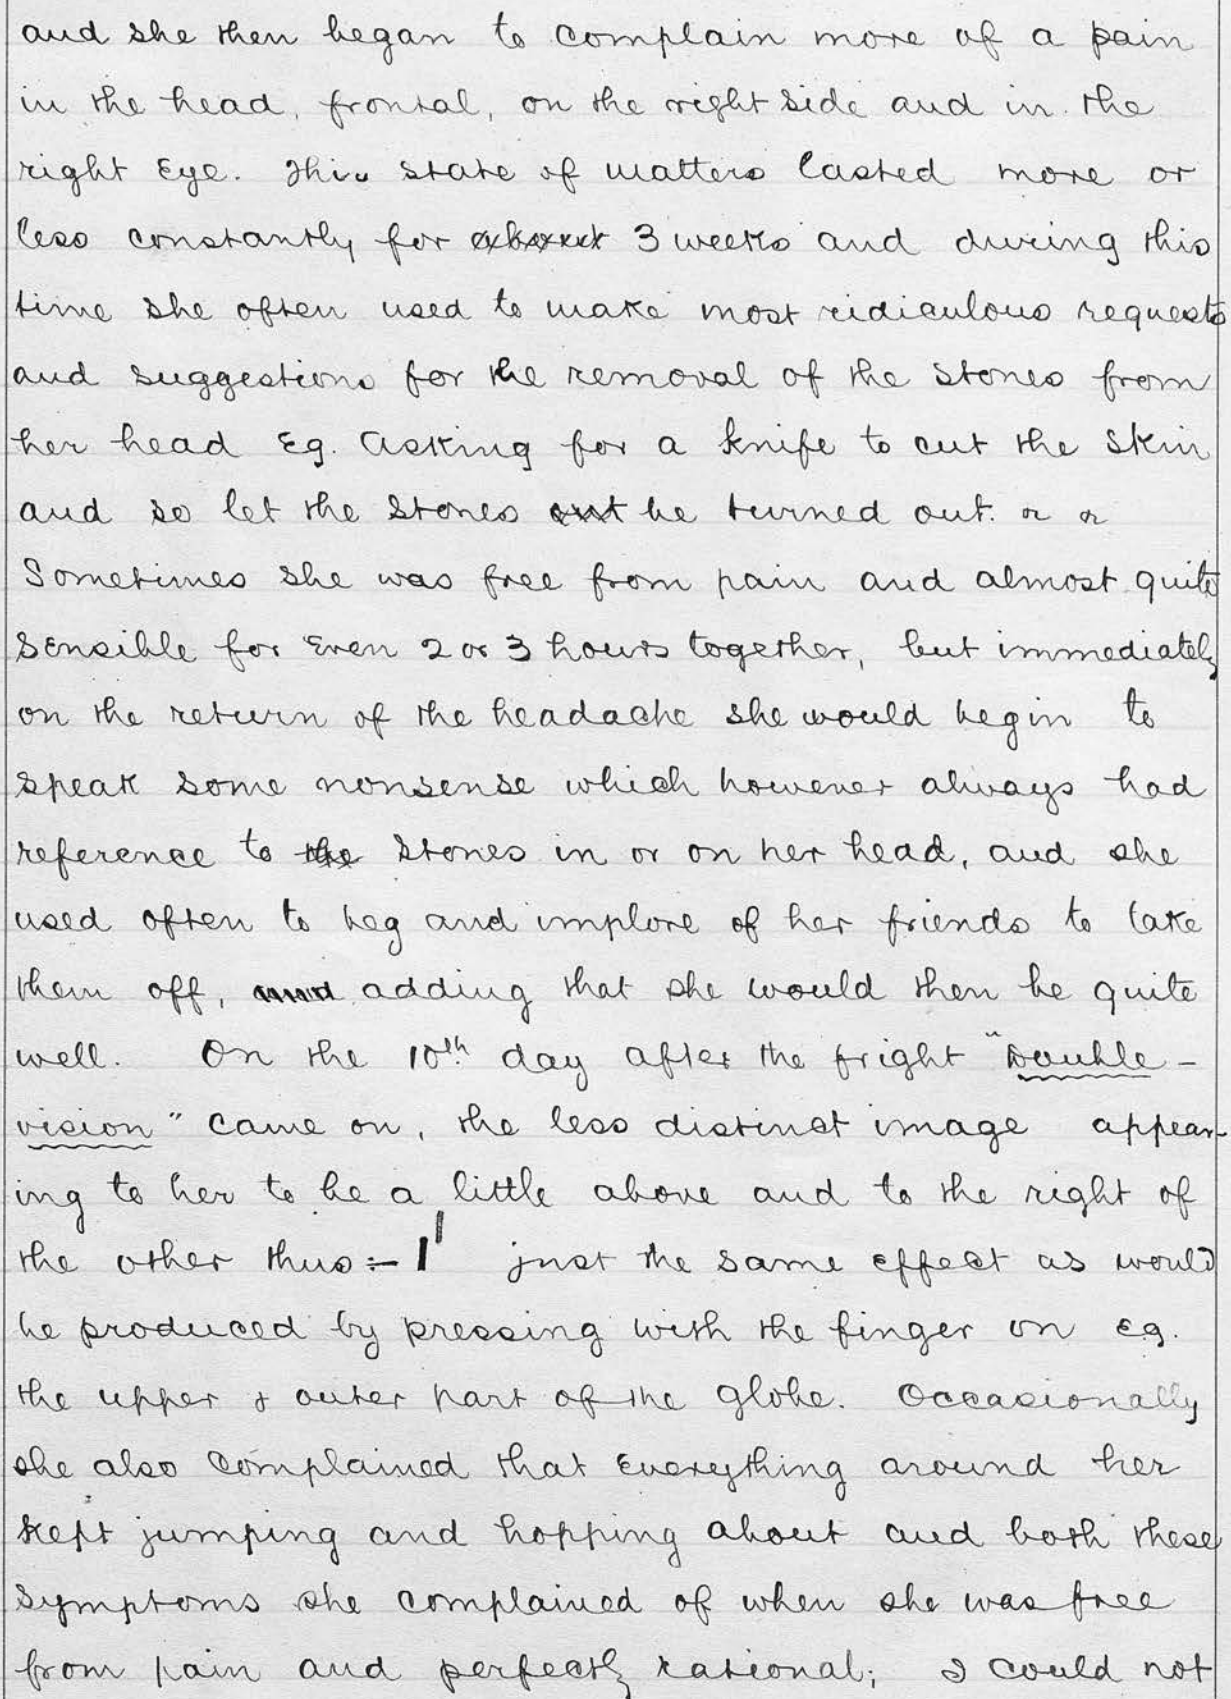 and she then began to complain more of a pain
in the head, frontal, on the right side and in the
right Eye. This state of matters lasted more or
less constantly for about 3 weeks and during this
time she often used to make most ridiculous requests
and suggestions for the removal of the stones from
her head Eg. asking for a knife to cut the skin
and so let the stones out be turned out.
Sometimes she was free from pain and almost quite
sensible for Even 2 or 3 hours together, but immediately
on the return of the headache she would begin to
speak some nonsense which however always had
reference to the stones in or on her head, and she
used often to beg and implore of her friends to take
them off, and adding that she would then be quite
well. On the 10th day after the fright "Double-
vision" came on, the less distinct image appear-
ing to her to be a little above and to the right of
the other thus:- just the same effect as would
be produced by pressing with the finger on eg.
the upper & outer part of the globe. Occasionally
she also complained that Everything around her
kept jumping and hopping about and both these
symptoms she complained of when she was free
from pain and perfectly rational; I could not